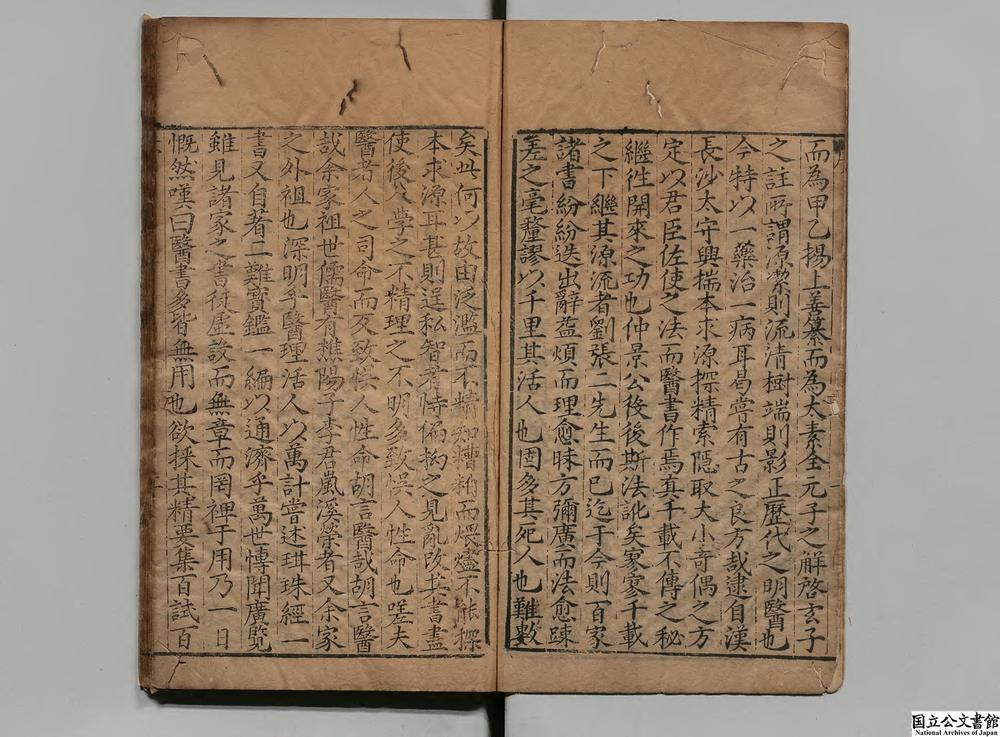 而為甲乙楊上善纂而為太素全元子之解啓玄子
之註所謂源潔則流清樹端則影正歷代之明醫也
今特以一藥治一病耳曷嘗有古之良方哉逮自漢
長沙太守興揣本求源探精索隱取大小竒偶之方
定以君臣佐使之法而醫書作焉真千載不傳之秘
繼徃開來之功也仲景公後後斯法訛矣寥寥千載
之下繼其源流者劉張二先生而已迄于今則百家
諸書紛紛迭出辭益煩而理愈昧方彌廣而法愈踈
差之毫釐謬以千里其活人也固多其死人也難數
矣此何以故由泛濫而不精知糟粕而煨燼不能探
本求源耳甚則逞私智者恃偏拘之見亂改其書盡
使後人學之不精理之不明多致悞人性命也嗟夫
醫者人之司命而反致悞人性命胡言醫哉胡言醫
哉余家祖世儒醫有樵陽子李君嵐溪榮者又余家
之外祖也深明乎醫理活人以萬計嘗述琪珠經一
書又自著二難寳鑑一編以通濟乎萬世慱聞廣覽
雖見諸家之書徒虛設而無章而罔裨于用乃一日
慨然嘆曰醫書多皆無用也欲採其精要集百試百
国立公文書館
National Archives of Japan